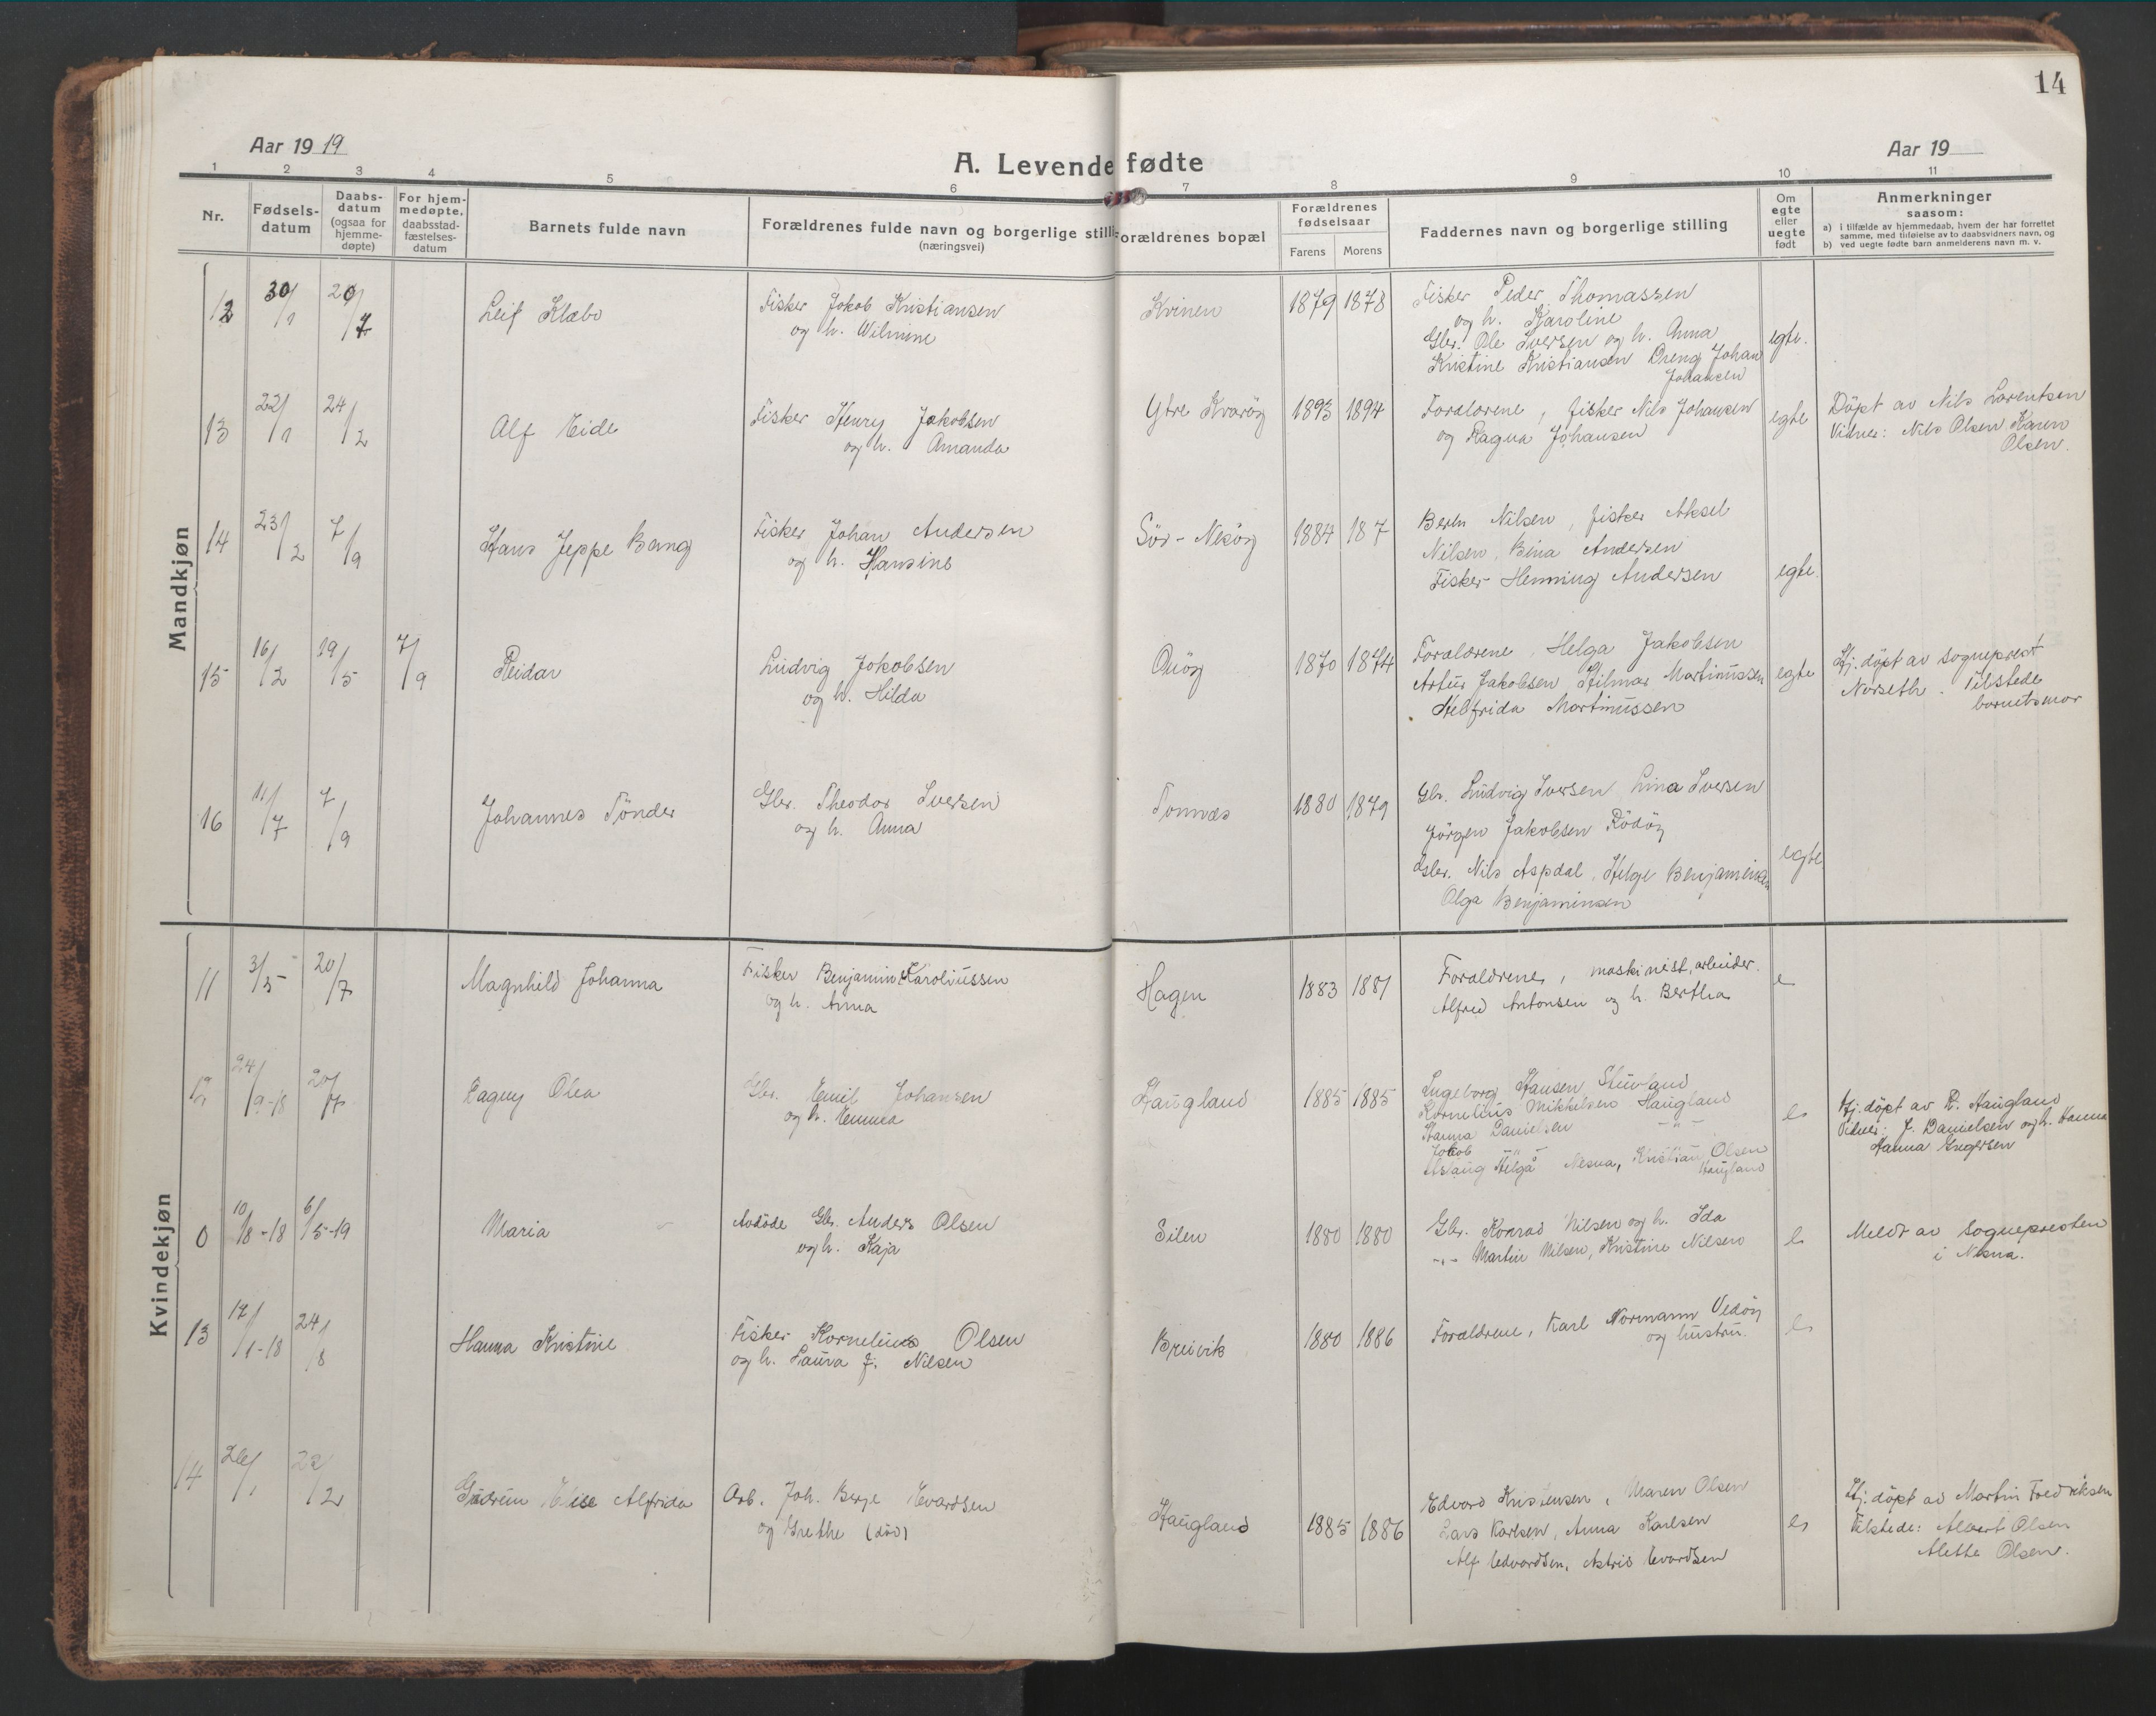 14
Aar 1919
A. Levende fødte
Aar 19
1 2 3 4 5 6 7 8 9 10 11
Nr.
Fødsels-
datum
Daabs-
datum
(ogsaa for
hjemme-
døpte)
For hjem-
medøpte,
daabsstad-
fæstelses-
datum
Barnets fulde navn
Forældrenes fulde navn og borgerlige stilli
(næringsvei)
orældrenes bopæl
Forældrenes
fødselsaar
Farens Morens
Faddernes navn og borgerlige stilling
Om
egte
eller
uegte
født
Anmerkninger
saasom:
a) i tilfælde av hjemmedaab, hvem der har forrettet
samme, med tilføielse av to daabsvidners navn, og
b) ved uegte fødte barn anmelderens navn m. v.
Mandkjøn
12 30/1 20/7 Leif Klæbo
Fisker Jakob Kristiansen
og h. Wilmine
Kvinen 1879 1878
Fisker Peder Thomassen
og h. Karoline
Gbr. Ole Iversen og h. Anna
Kristine Kristiansen Dreng Johan
Johansen
egte.
13 22/1 24/2 Alf Eide
Fisker Henry Jakobsen
og h. Amanda
Ytre Kvarøy 1893 1894
Forældrene, fisker Nils Johansen
og Ragna Johansen
egte
Döpt av Nils Lorentsen
Vidner: Nils Olsen Karen
Olsen.
14 23/2 7/9 Hans Jeppe Bang
Fisker Johan Andersen
og h. Hansine
Sör-Nesöy 1884 187
Nilsen, fisker Aksel
Nilsen, Bina Andersen
Fisker Henning Andersen
egte.
15 16/2 19/5 7/9 Reidar
Ludvig Jakobsen
og h. Hilda
1870 1874
Forældrene, Helga Jakobsen
Artur Jakobsen Hilmar Martinussen
Helfrida Martinussen
egte
Hj. döpt av sogneprest
Norseth. Tilstede
barnets mor
16 11/7 7/9 Johannes Tönder
Gbr. Theodor Iversen
og h. Anna
Tonnes 1880 1879
Gbr. Ludvig Iversen Lina Iversen
Jörgen Jakobsen Rödöy
Gbr. Nils Aspdal, Helge Benjaminsen
Olga Benjaminsen
egte
Kvindekjøn
11 3/5 20/7 Magnhild Johanna
Fisker Benjamin Karoliussen
og h. Anna
Hagen 1883 1881
Forældrene, maskinist, arbeider.
Alfred Antonsen og h. Bertha
e
12 24/9-18 20/7 Dagny Olea
Gbr. Emil Johansen
og h. Emma
Haugland 1885 1885
Ingeborg Hansen Stuvland
Kornelius Mikkelsen Haugland
Hanna Danielsen -"-
Jakob -"-
Aslaug Helgå Nesna, Kristian Olsen
Haugland
e
Hj. döpt av R. Haugland
Vidner: J. Danielsen og h. Hanna
Hanna Gregersen
0 10/8-18 6/5-19 Maria
Avdöde Gbr. Anders Olsen
og h. Kaja
Silen 1880 1880
Gbr. Konrad Nilsen og h. Ida
-"- Martin Nilsen, Kristine Nilsen
e
Meldt av sognepresten
i Nesna.
13 17/1-18 24/8 Hanna Kristine
Fisker Kornelius Olsen
og h. Laura J. Nilsen
Breivik 1880 1886
Forældrene, Karl Normann Vedöy
og hustru.
e
14 26/1 22/2 Gudrun Elise Alfrida
Arb. Joh. Berge Evardsen
og Grethe (död)
Haugland 1885 1886
Edvard Kristensen, Maren Olsen
Lars Karlsen, Anna Karlsen
Alf Edvardsen, Astrid Evardsen
e
Hj. döpt av Martin Fredriksen
Tilstede: Albert Olsen
Alette Olsen.